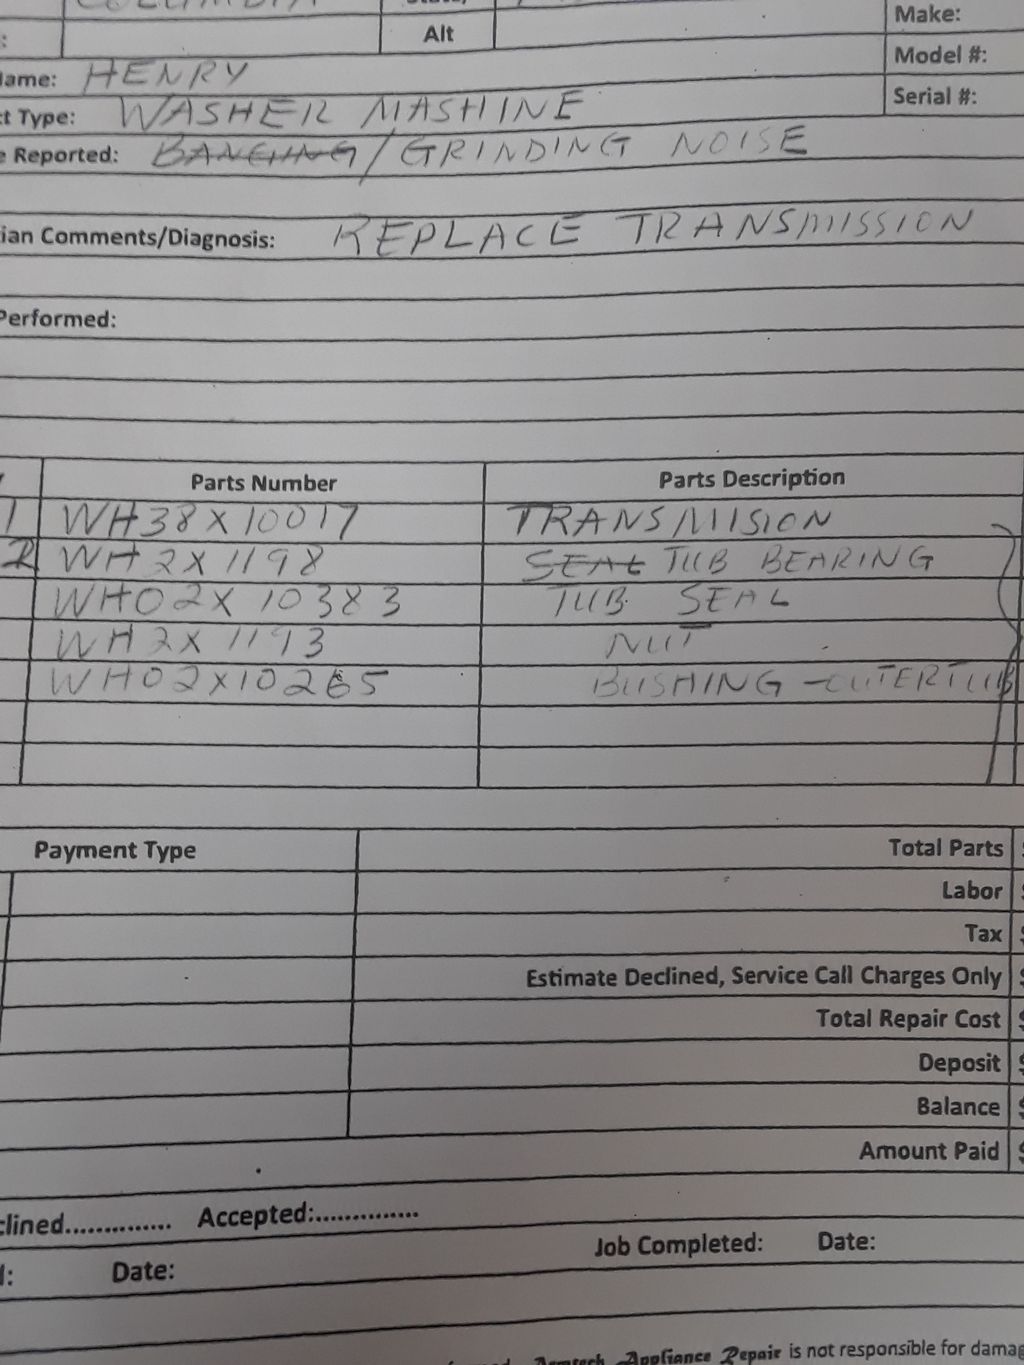 COLUMBIA
Make:
: Alt
Model #:
ame: HENRY
Serial #:
t Type: WASHER MASHINE
e Reported: BANGING/GRINDING NOISE
ian Comments/Diagnosis: REPLACE TRANSMISSION
Performed:
Parts Number Parts Description
1 WH38X10017 TRANSMISION
2 WH2X1198 SEAL TUB BEARING
WH02X10383 TUB SEAL
WH2X1193 NUT
WH02X10265 BUSHING - OUTERTUB
Payment Type Total Parts
Labor
Tax
Estimate Declined, Service Call Charges Only
Total Repair Cost
Deposit
Balance
Amount Paid
clined.............. Accepted:..............
Job Completed: Date:
: Date:
Appliance Repair is not responsible for damag